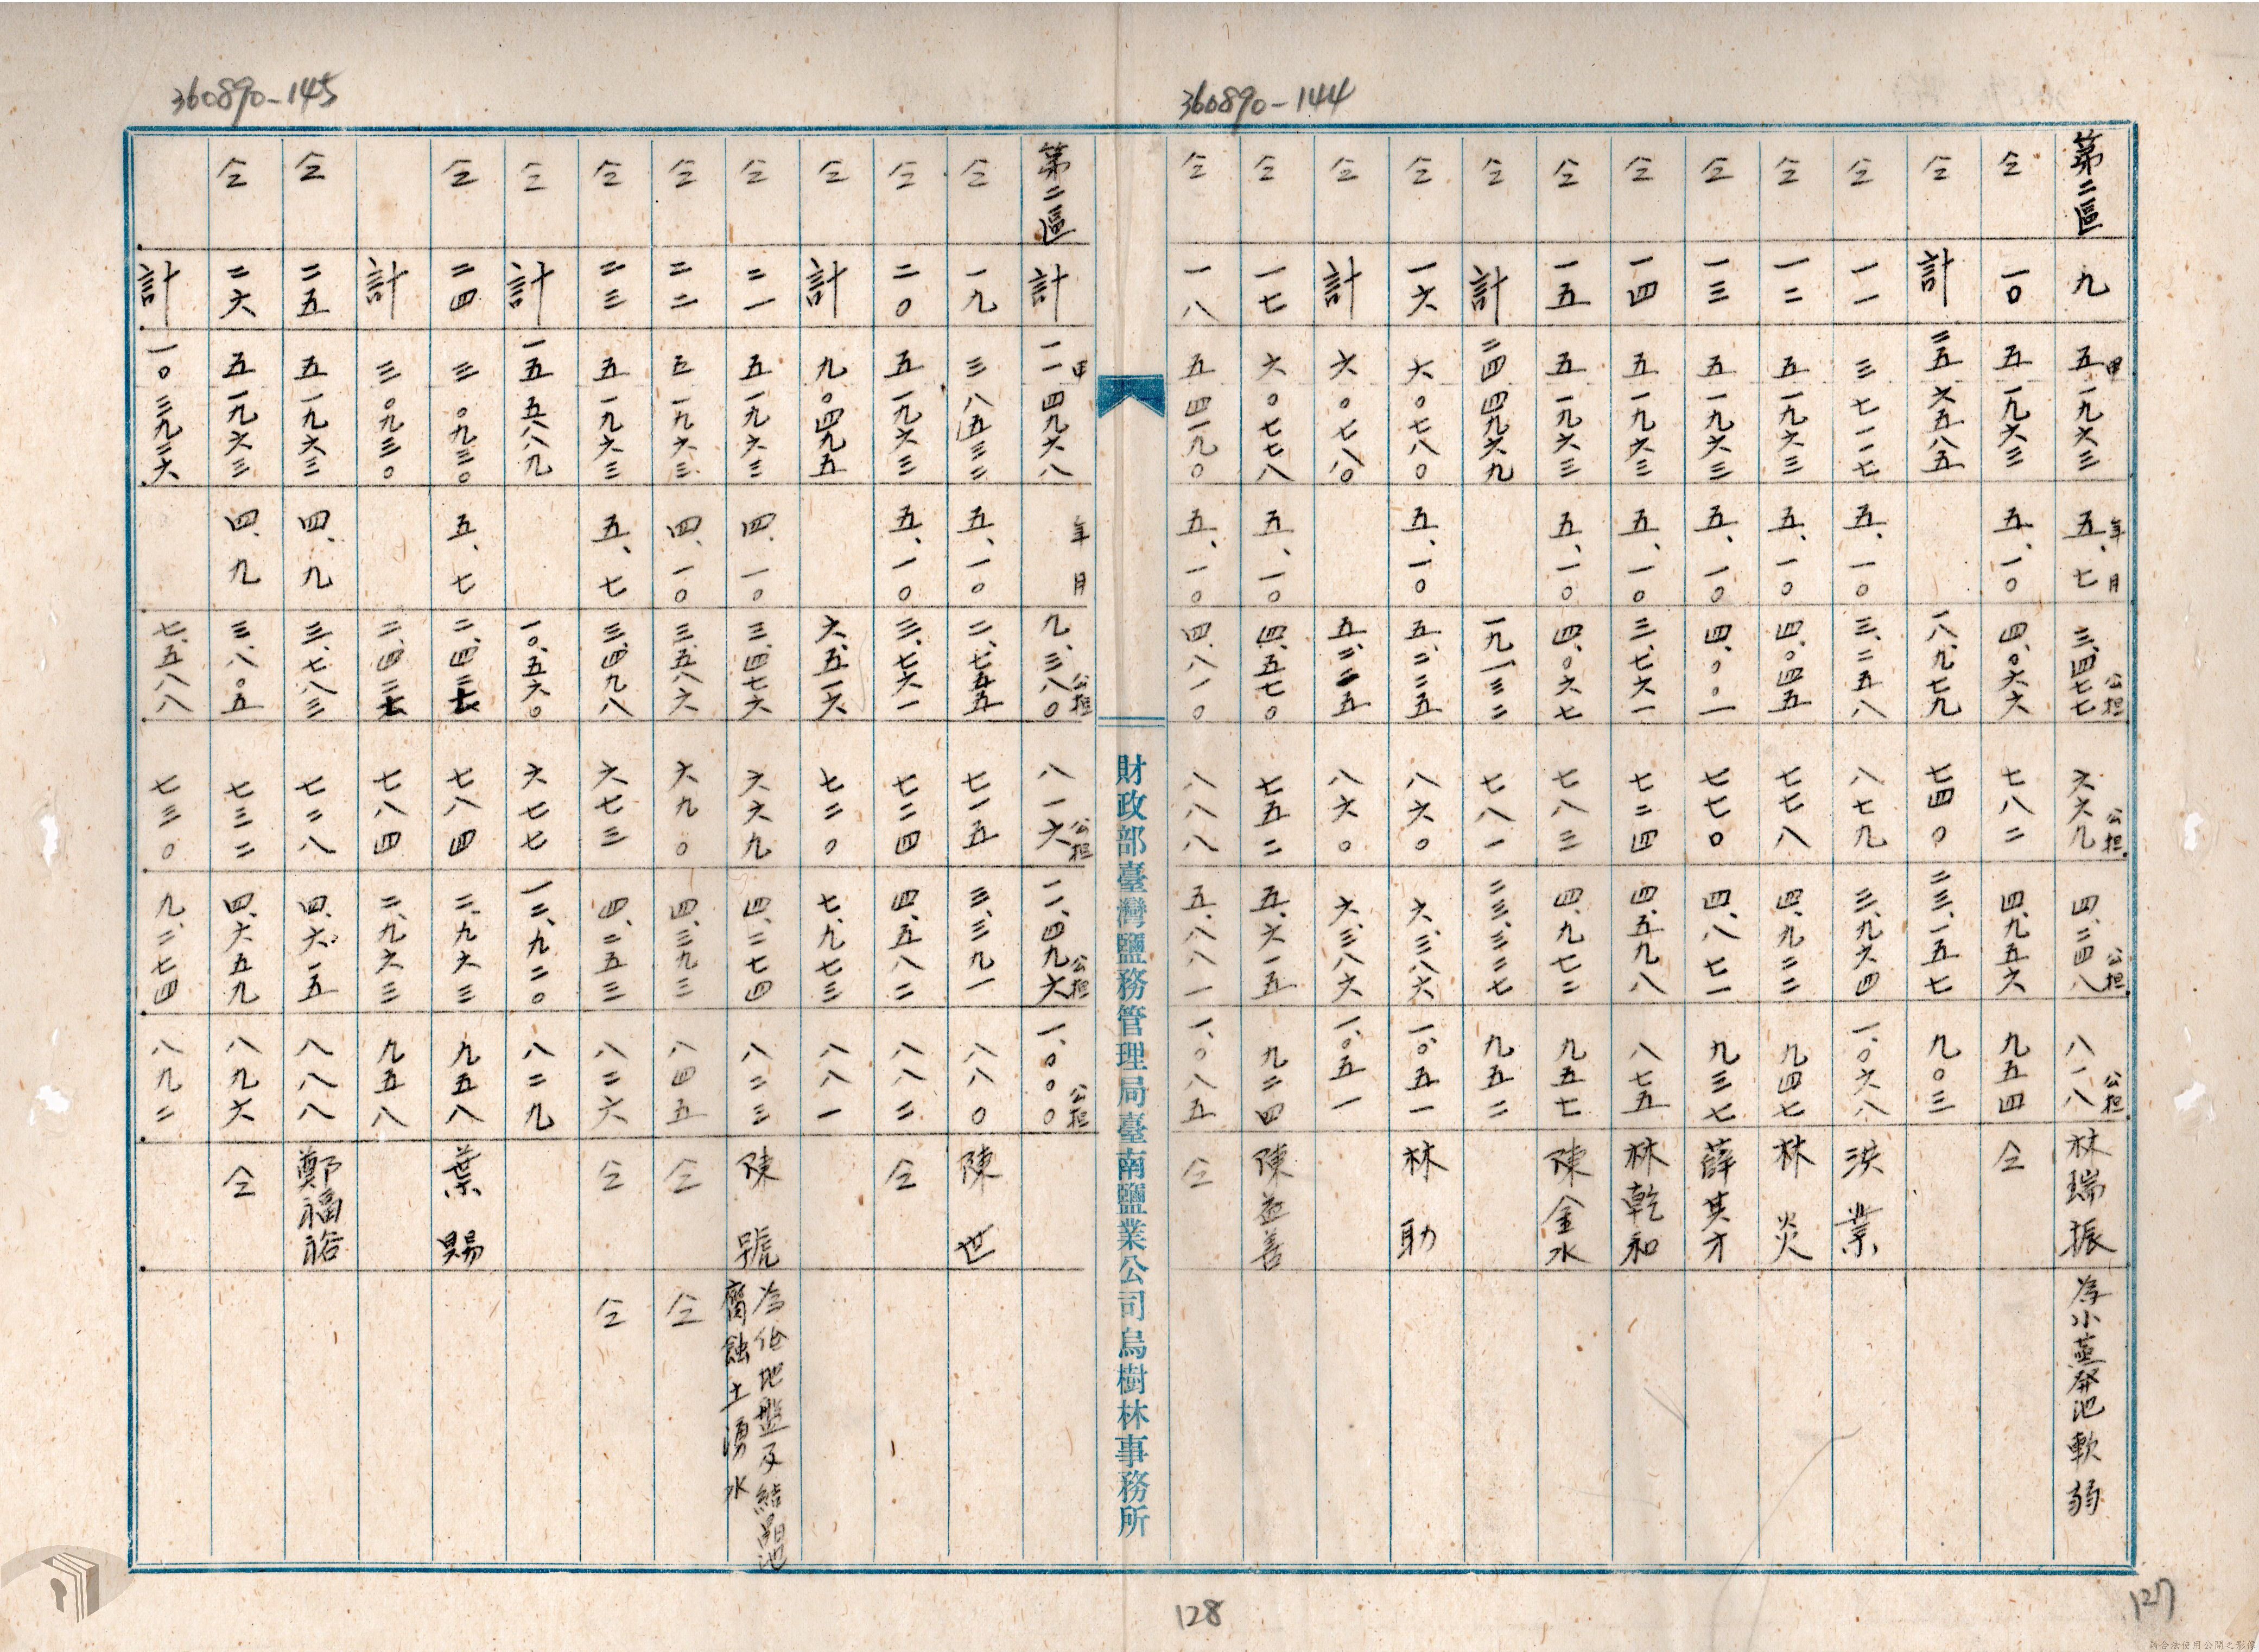 360890-144
第二區 九 五甲一九六三 五年、七月 三、四七七公担 六六九公担 四、二四八公担 八一八公担 林瑞振 為小蒸發池軟弱
仝 一〇 五一九六三 五、一〇 四、〇六六 七八二 四、九五六 九五四 仝
仝 計 二五六五八五 一八、九七九 七四〇 二三、一五七 九〇三
仝 一一 三七一一七 五、一〇 三、二五八 八七九 三、九六四 一、〇六八 洪業
仝 一二 五一九六三 五、一〇 四、〇四五 七七八 四、九二二 九四七 林炎
仝 一三 五一九六三 五、一〇 四、〇〇一 七七〇 四、八七一 九三七 薛其才
仝 一四 五一九六三 五、一〇 三、七六一 七二四 四、五九八 八七五 林乾和
仝 一五 五一九六三 五、一〇 四、〇六七 七八三 四、九七二 九五七 陳金水
仝 計 二四四九六九 一九、一三二 七八一 二三、三二七 九五二
仝 一六 六〇七八〇 五、一〇 五、二二五 八六〇 六、三八六 一、〇五一 林助
仝 計 六〇七八〇 五、二二五 八六〇 六、三八六 一、〇五一
仝 一七 六〇七七八 五、一〇 四、五七〇 七五二 五、六一五 九二四 陳益善
仝 一八 五四一九〇 五、一〇 四、八一〇 八八八 五、八八一 一、〇八五 仝
127
財政部臺灣鹽務管理局臺南鹽業公司烏樹林事務所
360890-145
第二區 計 一一甲四九六八 年月 九、三八〇公担 八一六公担 一一、四九六公担 一、〇〇〇公担
仝 一九 三八五三二 五、一〇 二、七五五 七一五 三、三九一 八八〇 陳世
仝 二〇 五一九六三 五、一〇 三、七六一 七二四 四、五八二 八八二 仝
仝 計 九〇四九五 六、五一六 七二〇 七、九七三 八八一
仝 二一 五一九六三 四、一〇 三、四七六 六六九 四、二七四 八二三 陳號 為伯地盤及結晶池
腐蝕土湧水
仝 二二 五一九六三 四、一〇 三、五八六 六九〇 四、三九三 八四五 仝 仝
仝 二三 五一九六三 五、七 三、四九八 六七三 四、二五三 八二六 仝 仝
仝 計 一五五八八九 一〇、五六〇 六七七 一二、九二〇 八二九
仝 二四 三〇九三〇 五、七 二、四二七 七八四 二、九六三 九五八 葉賜
計 三〇九三〇 二、四二七 七八四 二、九六三 九五八
仝 二五 五一九六三 四、九 三、七八三 七二八 四、六一五 八八八 鄭福裕
仝 二六 五一九六三 四、九 三、八〇五 七三二 四、六五九 八九六 仝
計 一〇三九二六 七、五八八 七三〇 九、二七四 八九二
128
請合法使用公開之影像